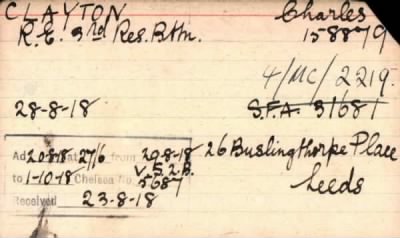 CLAYTON Charles
R.E. 3rd Res. Bttn. 158879
4/MC/2219.
28-8-18 S.F.A. 31681
Ad 20-8-18 at 27/6 from 20-8-18 26 Buslingthorpe Place
to 1-10-18 Chelsea No. 5687 Leeds
Received 23-8-18